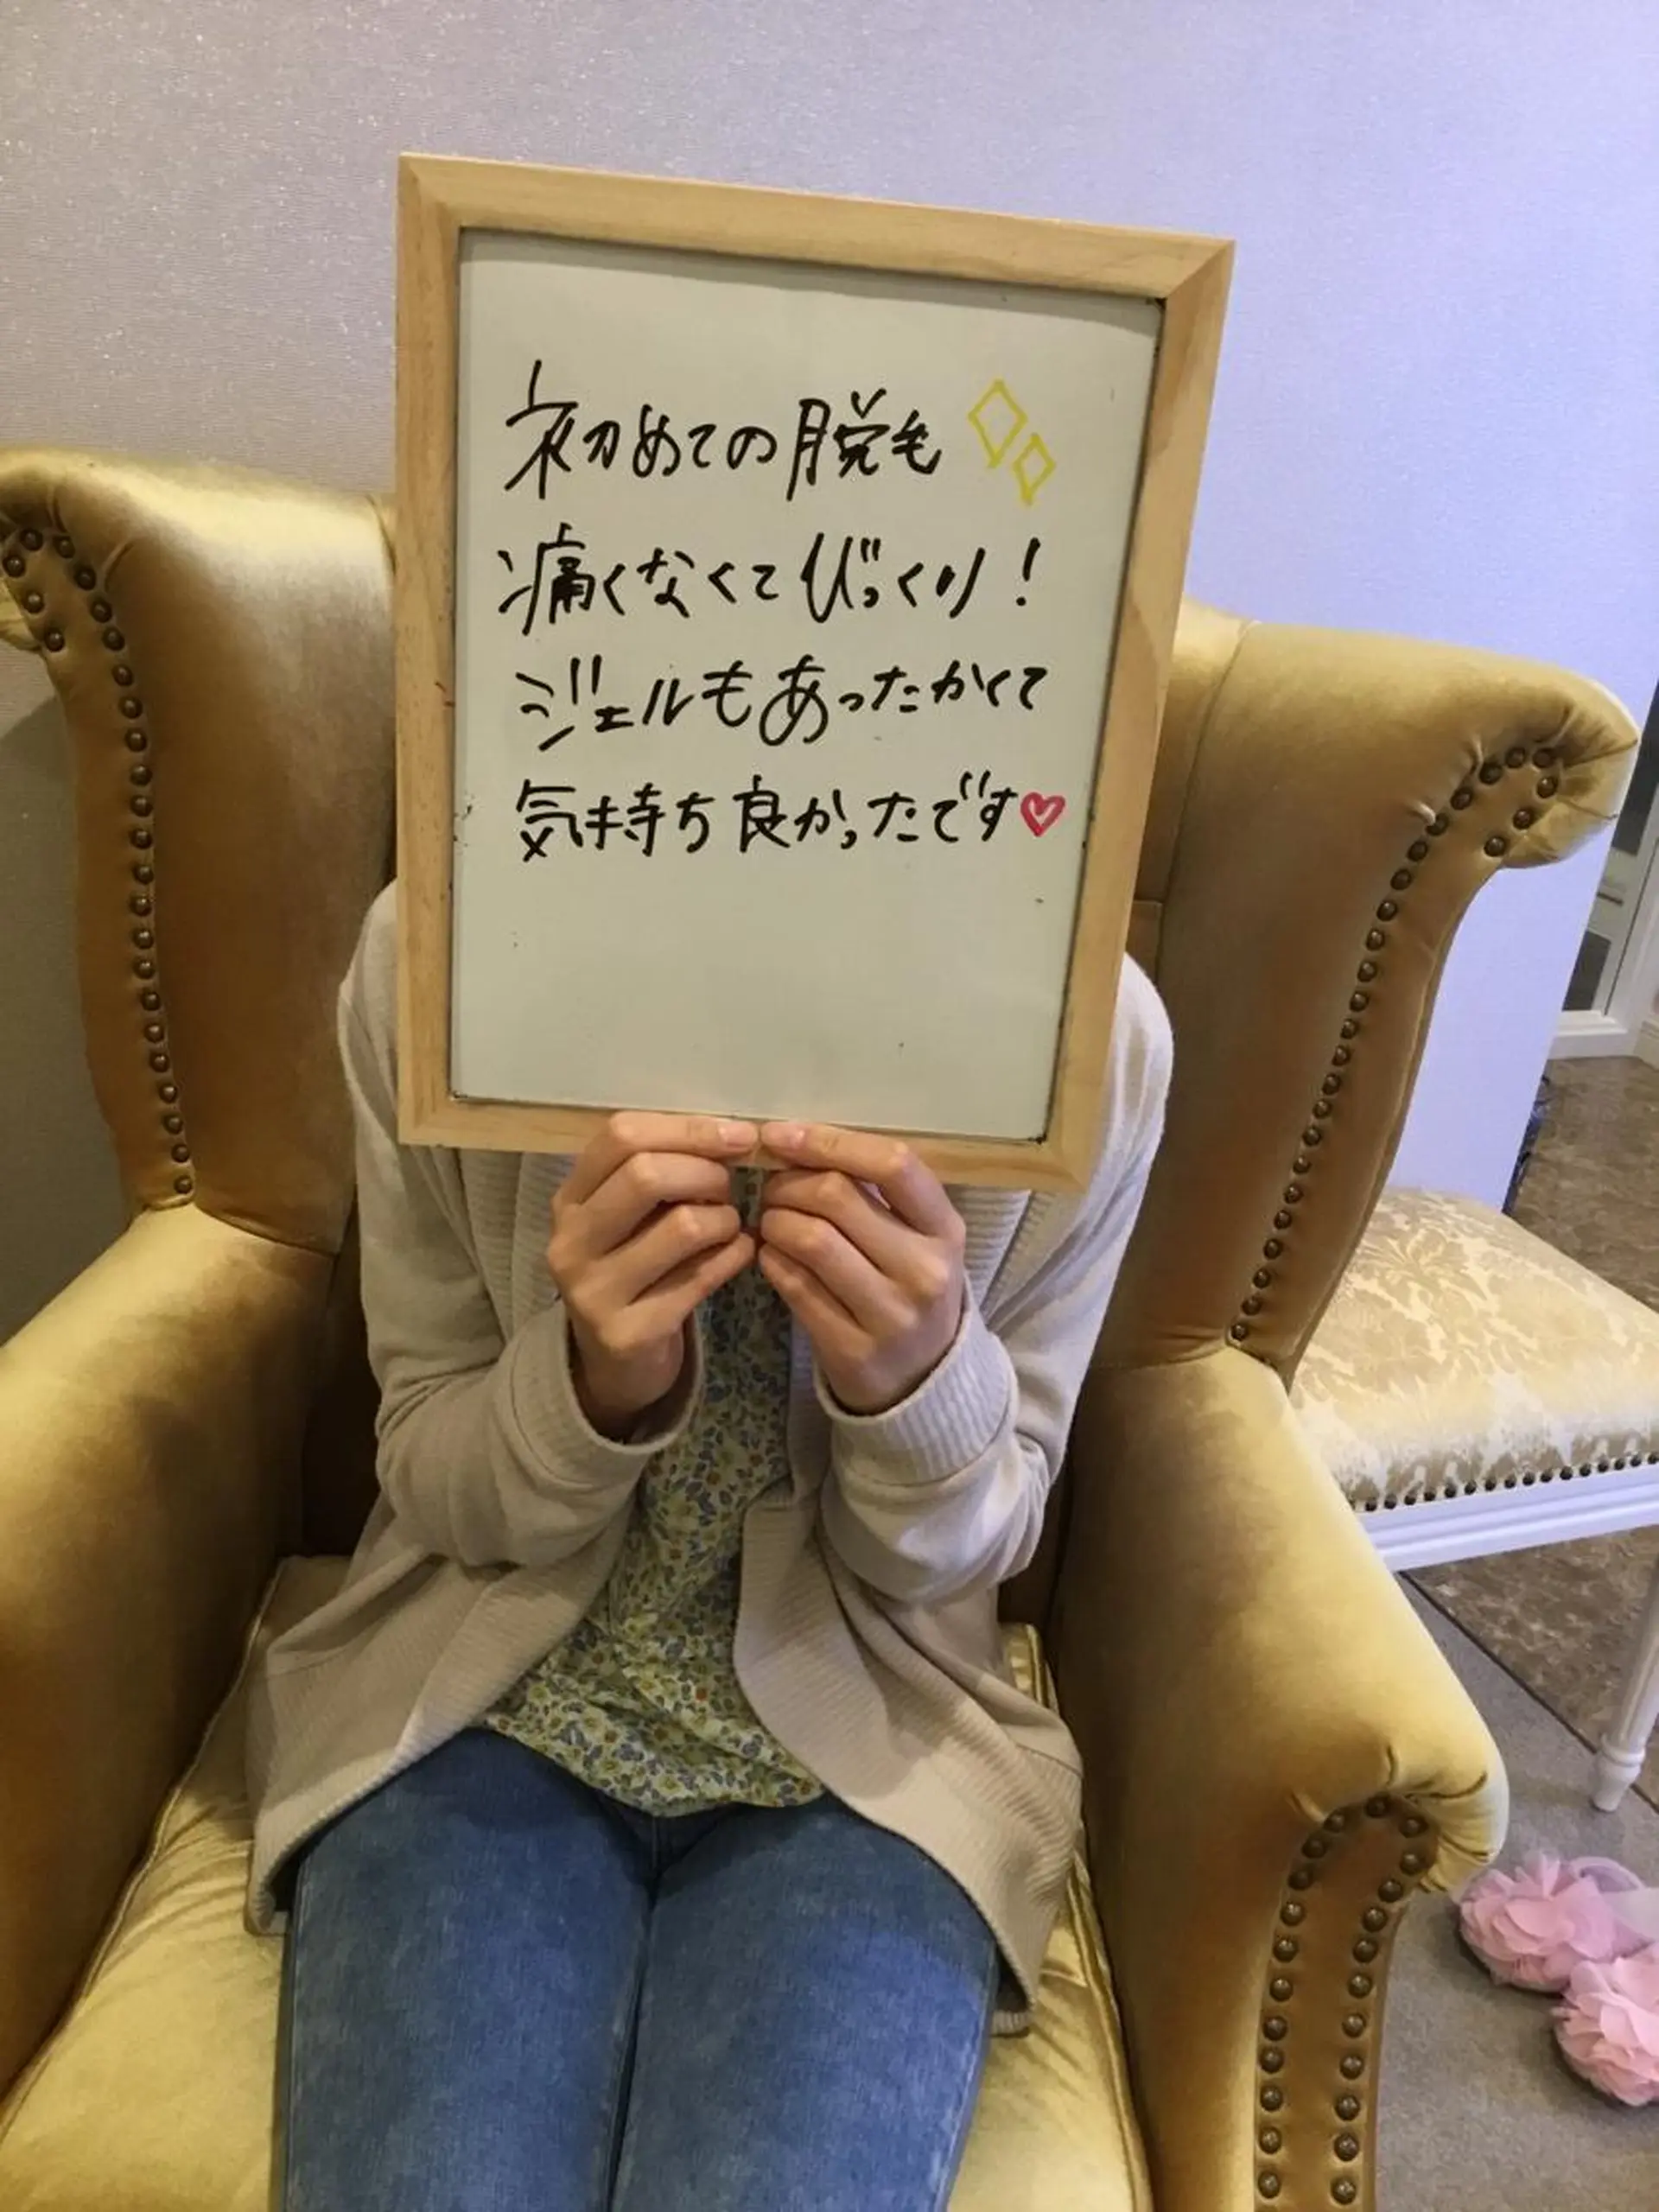 初めての脱毛
痛くなくてびっくり！
ジェルもあったかくて
気持ち良かったです♥